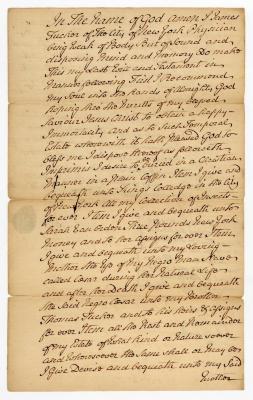 In The Name of God Amen I James
Tucker of The City of New York Physician
being Weak of Body But of Sound and
disposing Mind and Memory Do make
This my Last Will and Testament in
Manner following First I Recommend
my Soul into the Hands of Almighty God
hoping thro the Merrits of my Blessed
Saviour Jesus Christ to obtain a happy
Immortality and as to Such Temporal
Estate wherewith it hath pleased God to
bless me I dispose thereof as followeth
Imprimis I desire to be buried in a Christian
Manner in a plain Coffin Item I give and
bequeath unto Kings Colledge in the City
of New York all my Collection of
for ever Item I give and bequeath unto
Sarah Five Pounds New York
money and to her assigns for ever Item
I give and bequeath unto my Loving
Mother the Use of my Negro Man Slave
called Cesar during her Natural Life
and after her Death I give and bequeath
the Said Negro Cesar unto my Brother
Thomas Tucker and to his heirs & assigns
for ever Item all the Rest and Remainder
of my Estate of what Kind or Nature soever
and wheresoever the Same shall or may be
I give Devise and bequeath unto my Said
Mother